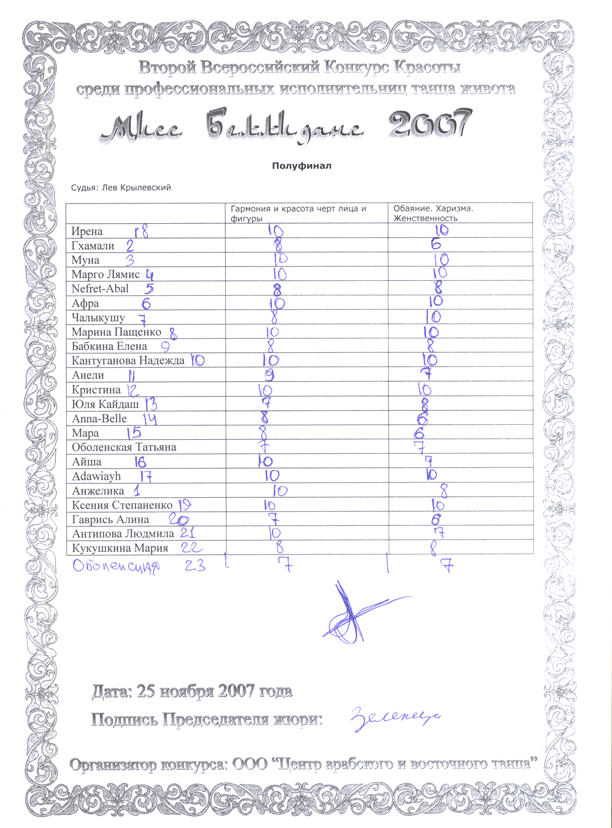 Второй Всероссийский Конкурс Красоты
среди профессиональных исполнительниц танца живота
Мисс Беллиданс 2007
Полуфинал
Судья: Лев Крылевский
Гармония и красота черт лица и фигуры Обаяние. Харизма. Женственность
Ирена 18 10 10
Гхамали 2 8 6
Муна 3 10 10
Марго Лямис 4 10 10
Nefret-Abal 5 8 8
Афра 6 10 10
Чалыкушу 7 8 10
Марина Пащенко 8 10 10
Бабкина Елена 9 8 8
Кантуганова Надежда 10 10 10
Анели 11 9 7
Кристина 12 10 10
Юля Кайдаш 13 7 8
Anna-Belle 14 8 6
Мара 15 8 6
Оболенская Татьяна 7 7
Айша 16 10 7
Adawiayh 17 10 10
Анжелика 1 10 8
Ксения Степаненко 19 10 10
Гаврись Алина 20 7 6
Антипова Людмила 21 10 7
Кукушкина Мария 22 8 8
Оболенская 23 7 7
Дата: 25 ноября 2007 года
Подпись Председателя жюри:
Организатор конкурса: ООО “Центр арабского и восточного танца”